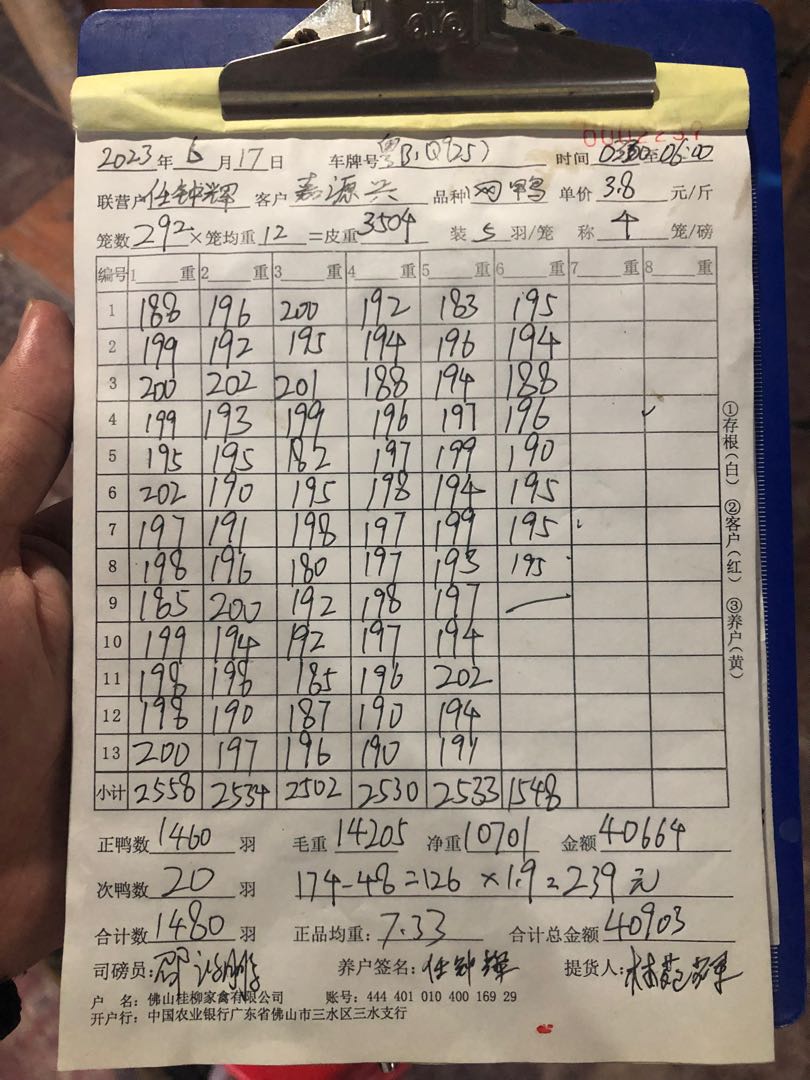 0002257
2023年6月17日 车牌号粤B1Q925) 时间0300至06:00
联营户任钟辉 客户嘉源兴 品种网鸭 单价3.8元/斤
笼数292×笼均重12=皮重3504 装5羽/笼 称4笼/磅
编号 1 重 2 重 3 重 4 重 5 重 6 重 7 重 8 重
1 188 196 200 192 183 195
2 199 192 195 194 196 194
3 200 202 201 188 194 188
4 199 193 199 196 197 196
5 195 195 182 197 199 190
6 202 190 195 198 194 195
7 197 191 198 197 199 195
8 198 196 180 197 193 195
9 185 200 192 198 197
10 199 194 192 197 194
11 198 198 185 196 202
12 198 190 187 190 194
13 200 197 196 190 191
小计 2558 2534 2502 2530 2533 1548
正鸭数1460羽 毛重14205 净重10701 金额40664
次鸭数20羽 174-48=126×1.9=239元
合计数1480羽 正品均重:7.33 合计总金额40903
司磅员: 养户签名:任钟辉 提货人:
户 名:佛山桂柳家禽有限公司 账号:444 401 010 400 169 29
开户行:中国农业银行广东省佛山市三水区三水支行
①存根(白) ②客户(红) ③养户(黄)